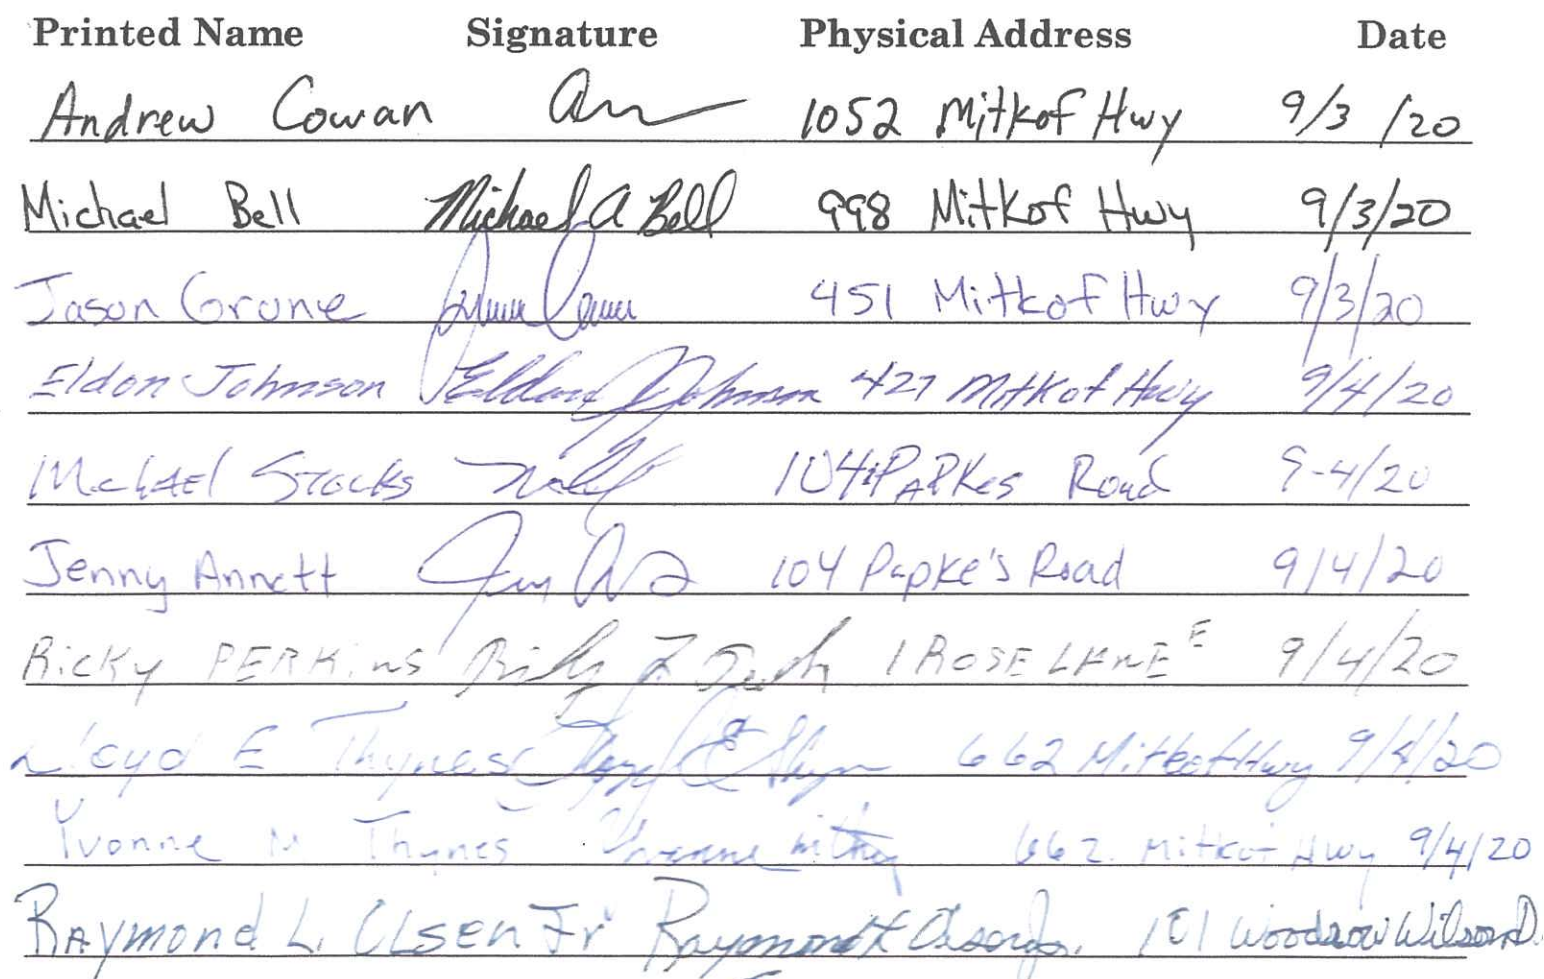 Printed Name Signature Physical Address Date
Andrew Cowan 1052 Mitkof Hwy 9/3/20
Michael Bell Michael A Bell 998 Mitkof Hwy 9/3/20
Jason 451 Mitkof Hwy 9/3/20
Eldon Johnson Eldon Johnson 427 Mitkof Hwy 9/4/20
Michael Stocks 104 Road 9-4/20
Jenny Annett 104 Papke's Road 9/4/20
Ricky PERKiNS 1 ROSE LANE 9/4/20
Lloyd E Thynes 662 Mitkof Hwy 9/4/20
Yvonne M Thynes 662 Mitkof Hwy 9/4/20
Raymond L. Olsen Jr Raymond L Olsen Jr. 101 Woodrow Wilson D.